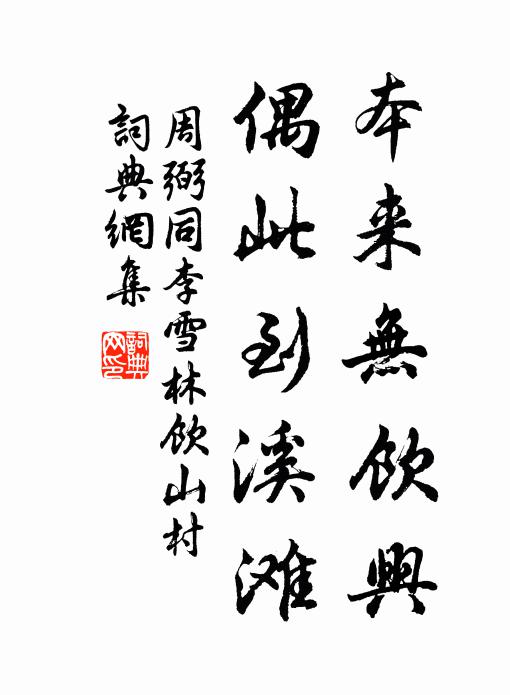 本来無飲興
偶此到溪滩
周弼同李雪林飲山村
詞典網集
詞典网印